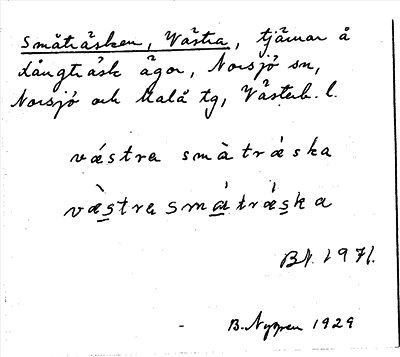 Småträsken, Västra, tjärnar å
Långträsk ägor, Norsjö sn,
Norsjö och Malå tg, Västerb. l.
vǽstra små̀trǽska
væ̀stra småtrǽska
Bl. 1971.
B. Nygren 1929